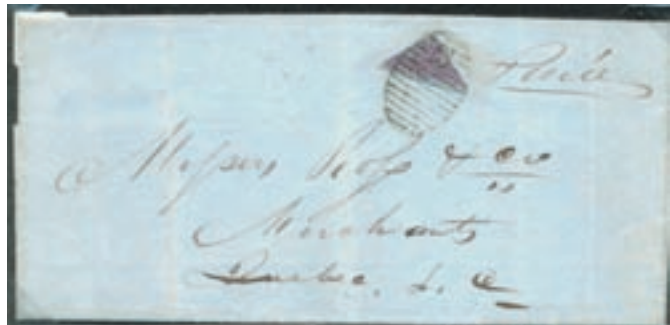 Paid
Messrs Ross & Co
Merchants
Quebec, L. C.